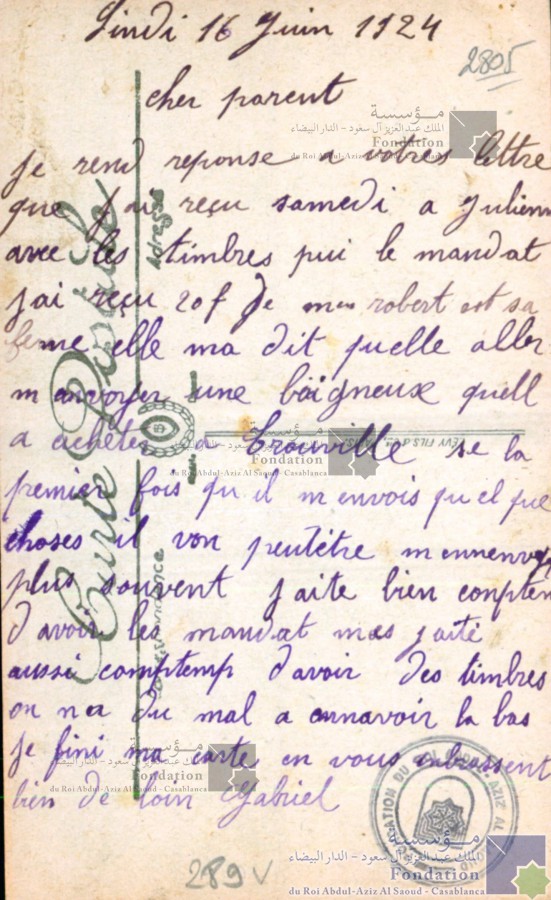 Lindi 16 Juin 1924
2805
cher parent
je rend reponse a votres lettre
que j'ai reçu samedi a Julienn
avec les timbres pui le mandat
j'ai reçu 20f de mes robert est sa
feme elle ma dit quelle aller
m envoyer une baigneux quell
a acheter a Trouville se la
premier fois qu il m envois quel que
choses il von peutètre m ennenvoy
plus souvent jaite bien conpten
d'avoir les mandat mes jaité
aussi comptemp d'avoir des timbres
on na du mal a ennavoir la bas
je fini ma carte en vous enbrassent
bien de loin Gabriel
289 v
Carte Postale
Adresse
Correspondance
LÉVY FILS & Cie PARIS
مؤسسة
الملك عبدالعزيز آل سعود - الدار البيضاء
Fondation
du Roi Abdul-Aziz Al Saoud - Casablanca
مؤسسة
Fondation
du Roi Abdul-Aziz Al Saoud - Casablanca
مؤسسة
Fondation
du Roi Abdul-Aziz Al Saoud - Casablanca
مؤسسة
الملك عبدالعزيز آل سعود - الدار البيضاء
Fondation
du Roi Abdul-Aziz Al Saoud - Casablanca
FONDATION DU ROI ABDUL AZIZ AL